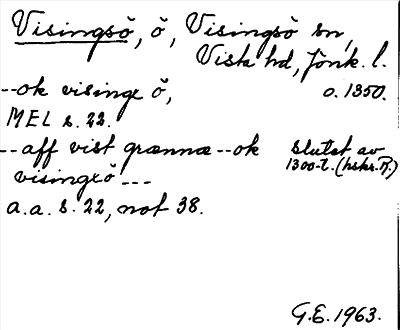 Visingsö, ö, Visingsö sn,
Vista hd, Jönk. l.
--ok visinge ö, o. 1350.
MEL s. 22.
--aff vist grænnæ--ok slutet av
visingxö --- 1300-t. (hskr. R.)
a.a. s. 22, not 38.
G.E. 1963.